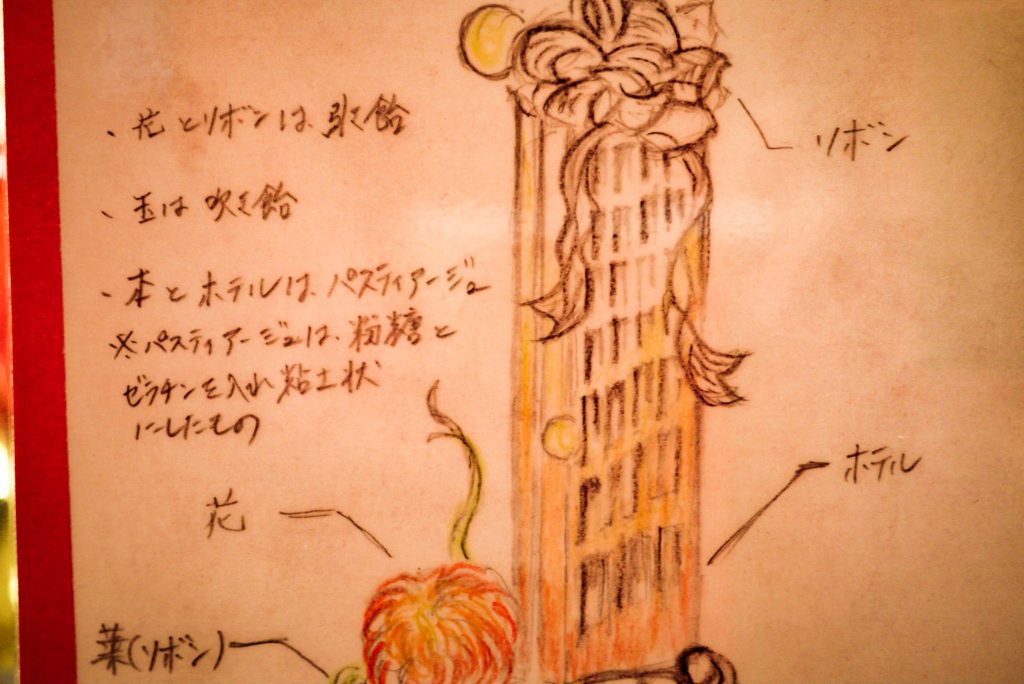 、花とリボンは、引き飴
、玉は吹き飴
、本とホテルは、パスティアージュ
※パスティアージュは、粉糖と
ゼラチンを入れ粘土状
にしたもの
リボン
ホテル
花
葉(リボン)